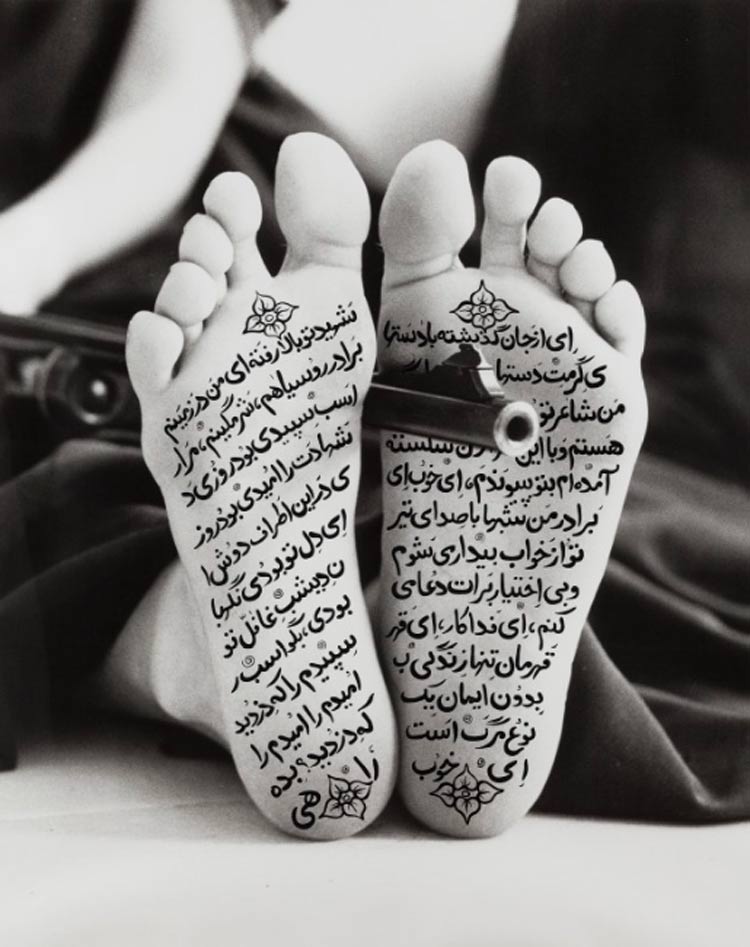 ای ازجان گذشته با دستها
ی گرمت دستها
من شاعر تو
هستم و با این شکسته
آمده ام بتو بپیوندم، ای خوب ای
برادر من شبها با صدای تیر
تو از خواب بیدار می شوم
و بی اختیار برات دعا می
کنم، ای فداکار، ای قهر
قهرمان تنها زندگی ب
بدون ایمان یک
نوع مرگ است
ای خوب
شهید تو بالا رفته ای من در زمینم
برادر روسیاهم، شرمگینم، مرا ر
اسب سپیدی بود روزی د
شهادت را امیدی بود روز
ی در این اطراف دوش ا
ای دل تو بودی
ن دیشب غافل تو
بودی، بگو اسب
سپیدم را که دزدید
امیدم را امیدم را
که دزدید؟ بده
را هی